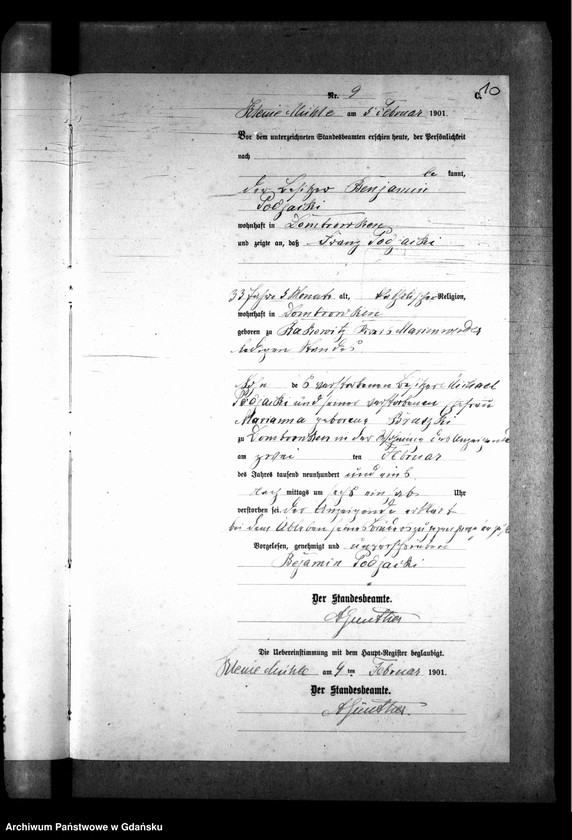 C.
10
Nr. 9
Kleine Mühle am 5 Februar 1901.
Vor dem unterzeichneten Standesbeamten erschien heute, der Persönlichkeit
nach
be kannt,
der Besitzer Benjamin
Podjaski
wohnhaft in Dombrowken
und zeigte an, daß Franz Podjaski
33 Jahre 5 Monate alt, katholischer Religion,
wohnhaft in Dombrowken
geboren zu Rakowitz Kreis Marienwerder
ledigen Standes
Sohn des verstorbenen Besitzers Michael
Podjaski und seiner verstorbenen Ehefrau
Marianna geborene
zu Dombrowken in der Wohnung des Anzeigenden
am zwei ten Februar
des Jahres tausend neunhundert und eins
Nach mittags um ein halb Uhr
verstorben sei. Der Anzeigende erklärt
bei dem Ableben seines Bruders zugegen gewesen
Vorgelesen, genehmigt und unterschrieben
Bejamin Podjaski
Der Standesbeamte.
A Günther
Die Uebereinstimmung mit dem Haupt-Register beglaubigt.
Kleine Mühle am 9 ten Februar 1901.
Der Standesbeamte.
A Günther.
Archiwum Państwowe w Gdańsku